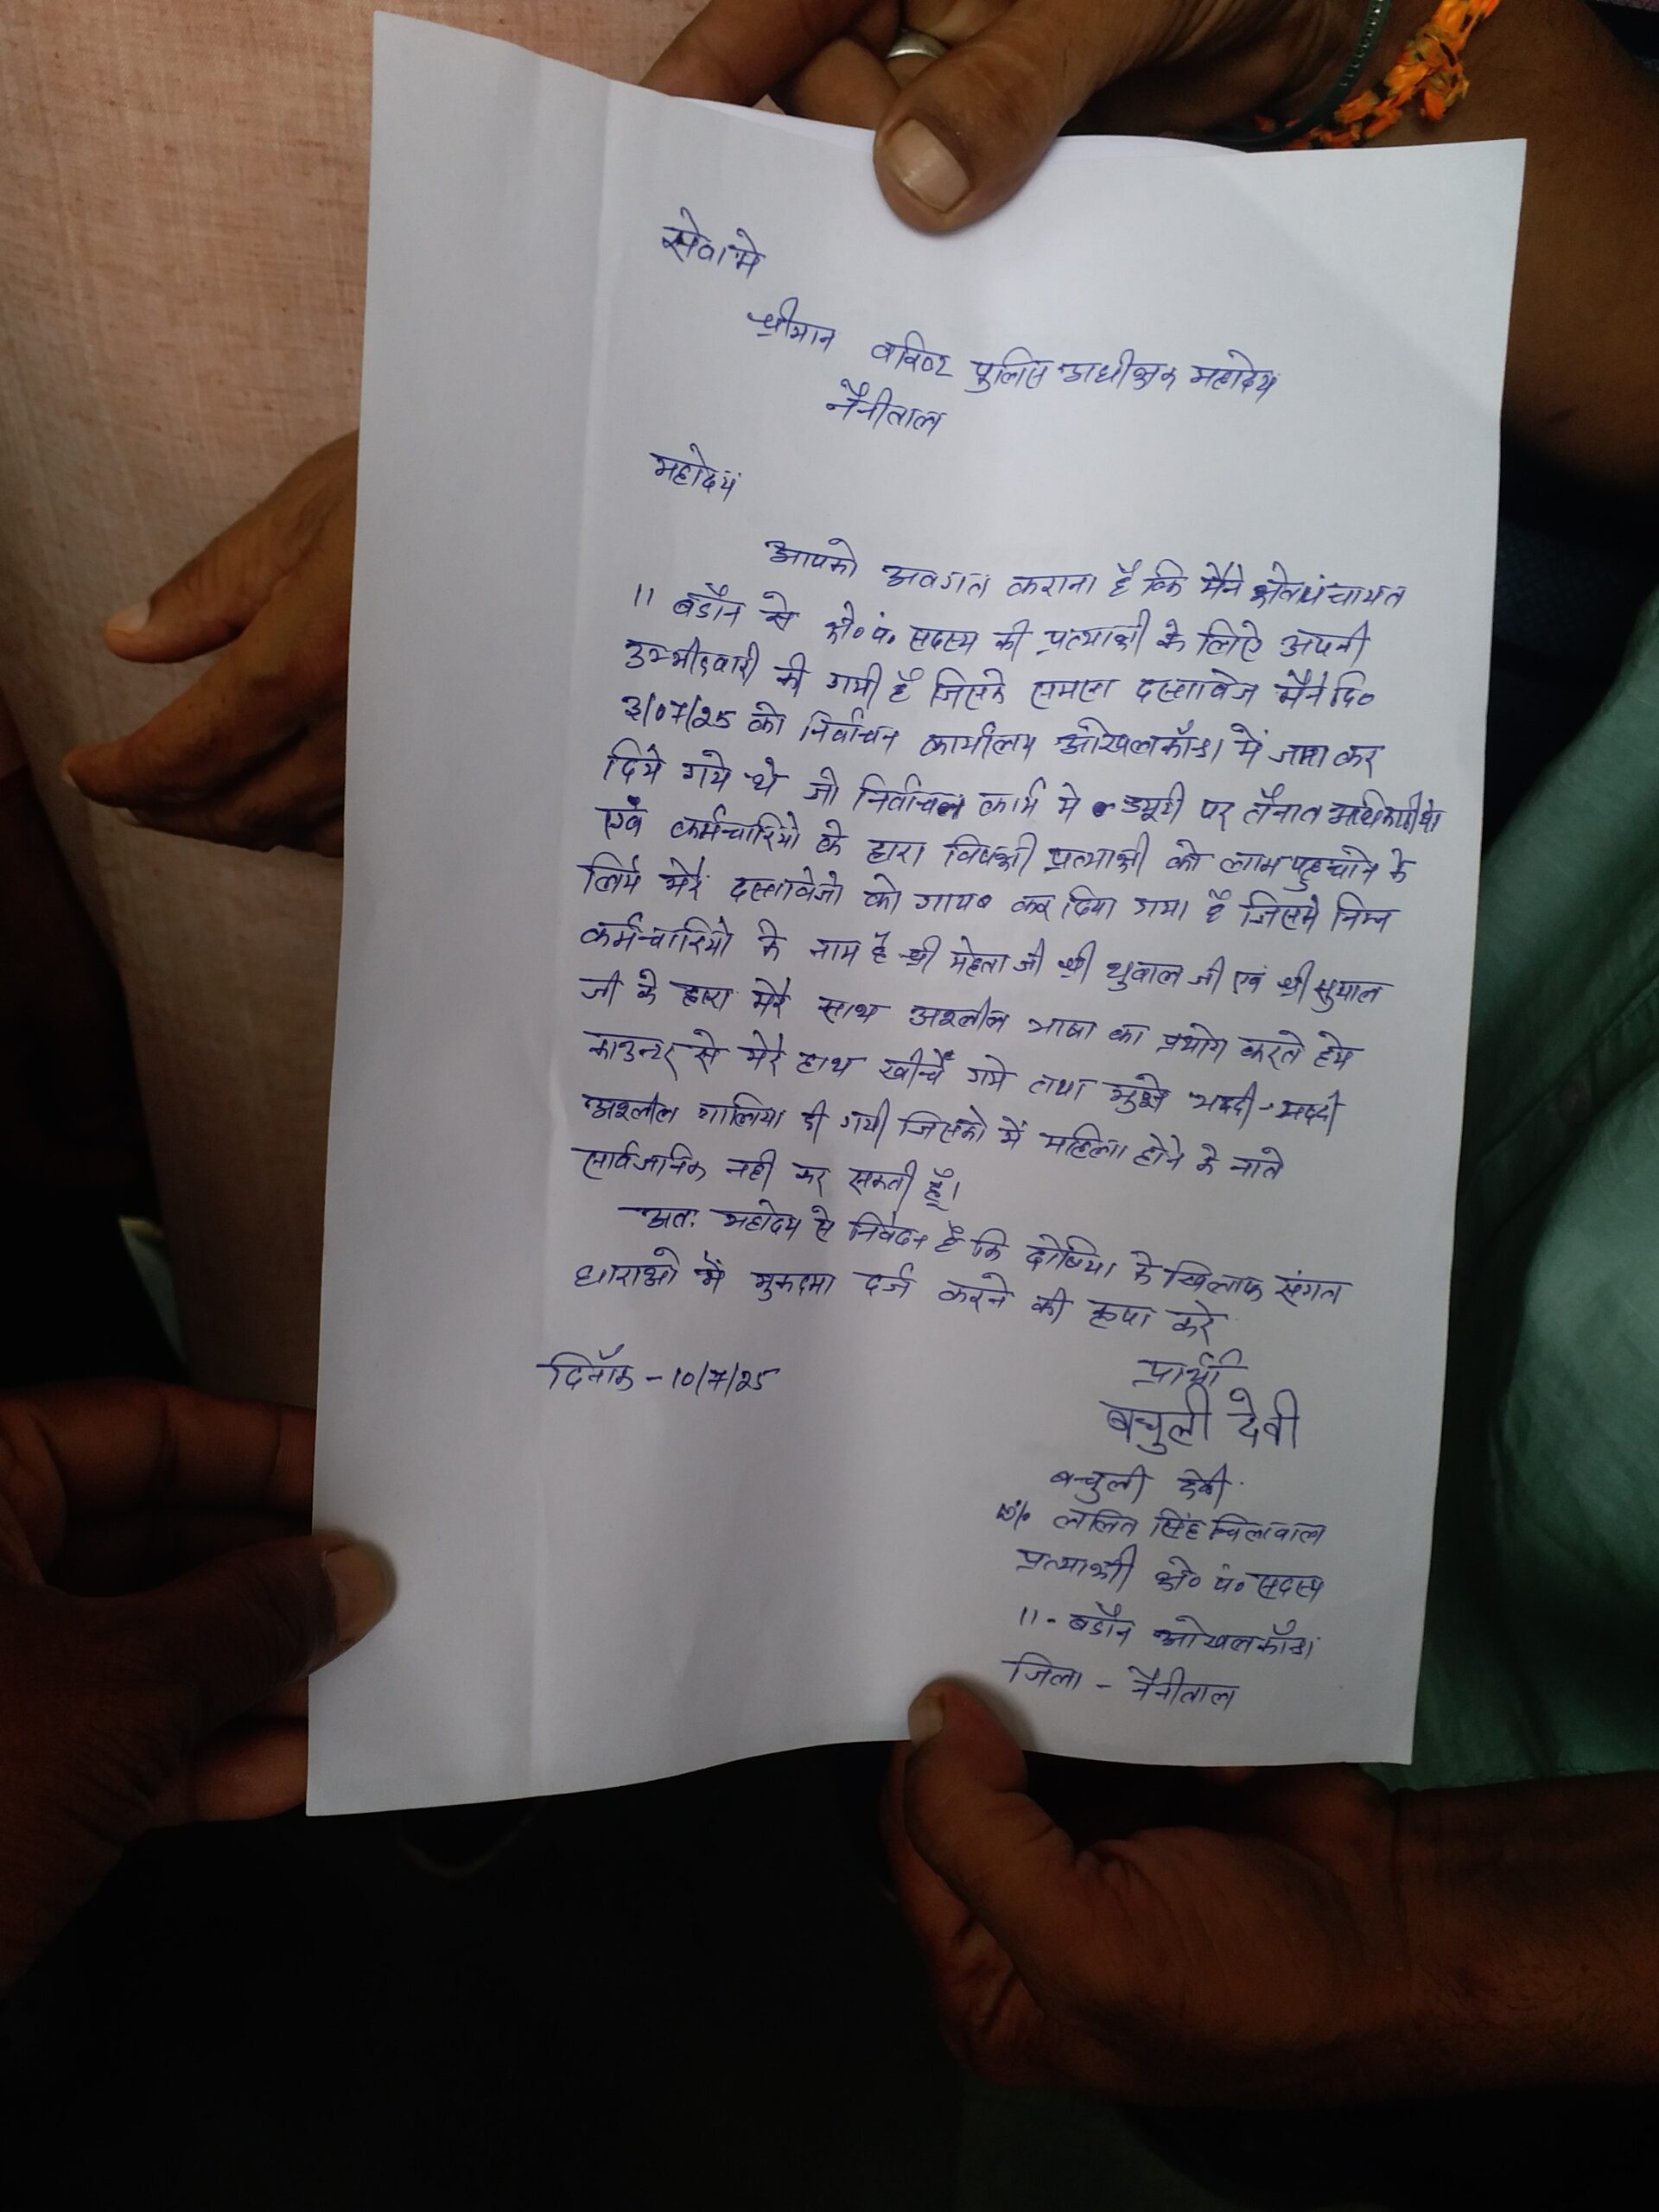 सेवा मे
श्रीमान वरिष्ट पुलिस अधीक्षक महोदय
नैनीताल
महोदय
आपको अवगत कराना है कि मैने क्षेत्र पंचायत
11 बडौन से क्षे० पं० सदस्य की प्रत्याक्षी के लिऐ अपनी
उम्मीदवारी की गयी है जिसके समस्त दस्तावेज मैने दि०
3/07/25 को निर्वाचन कार्यालय ओखलकाँडा में जमा कर
दिये गये थे जो निर्वाचन कार्य मे ड्यूटी पर तैनात अधिकारीयो
एवं कर्मचारियो के द्वारा विपक्षी प्रत्याक्षी को लाभ पहुचाने के
लिये मेरे दस्तावेजो को गायब कर दिया गया है जिसमे निम्न
कर्मचारियो के नाम है श्री मेहता जी श्री थुवाल जी एवं श्री सुयाल
जी के द्वारा मेरे साथ अश्लील भाषा का प्रयोग करते हुये
काउन्टर से मेरे हाथ खीचेँ गये तथा मुझे भद्दी-भद्दी
अश्लील गालिया दी गयी जिसको में महिला होने के नाते
सार्वजनिक नही कर सकती हूँ।
अतः महोदय से निवेदन है कि दोषियो के खिलाफ संगत
धाराओ में मुकदमा दर्ज करने की कृपा करे
प्रार्थी
दिनाँक - 10/7/25
बचुली देवी
बचुली देवी
W/o ललित सिंह चिलवाल
प्रत्याक्षी क्षे० पं० सदस्य
11 - बडौन ओखलकाँडा
जिला - नैनीताल